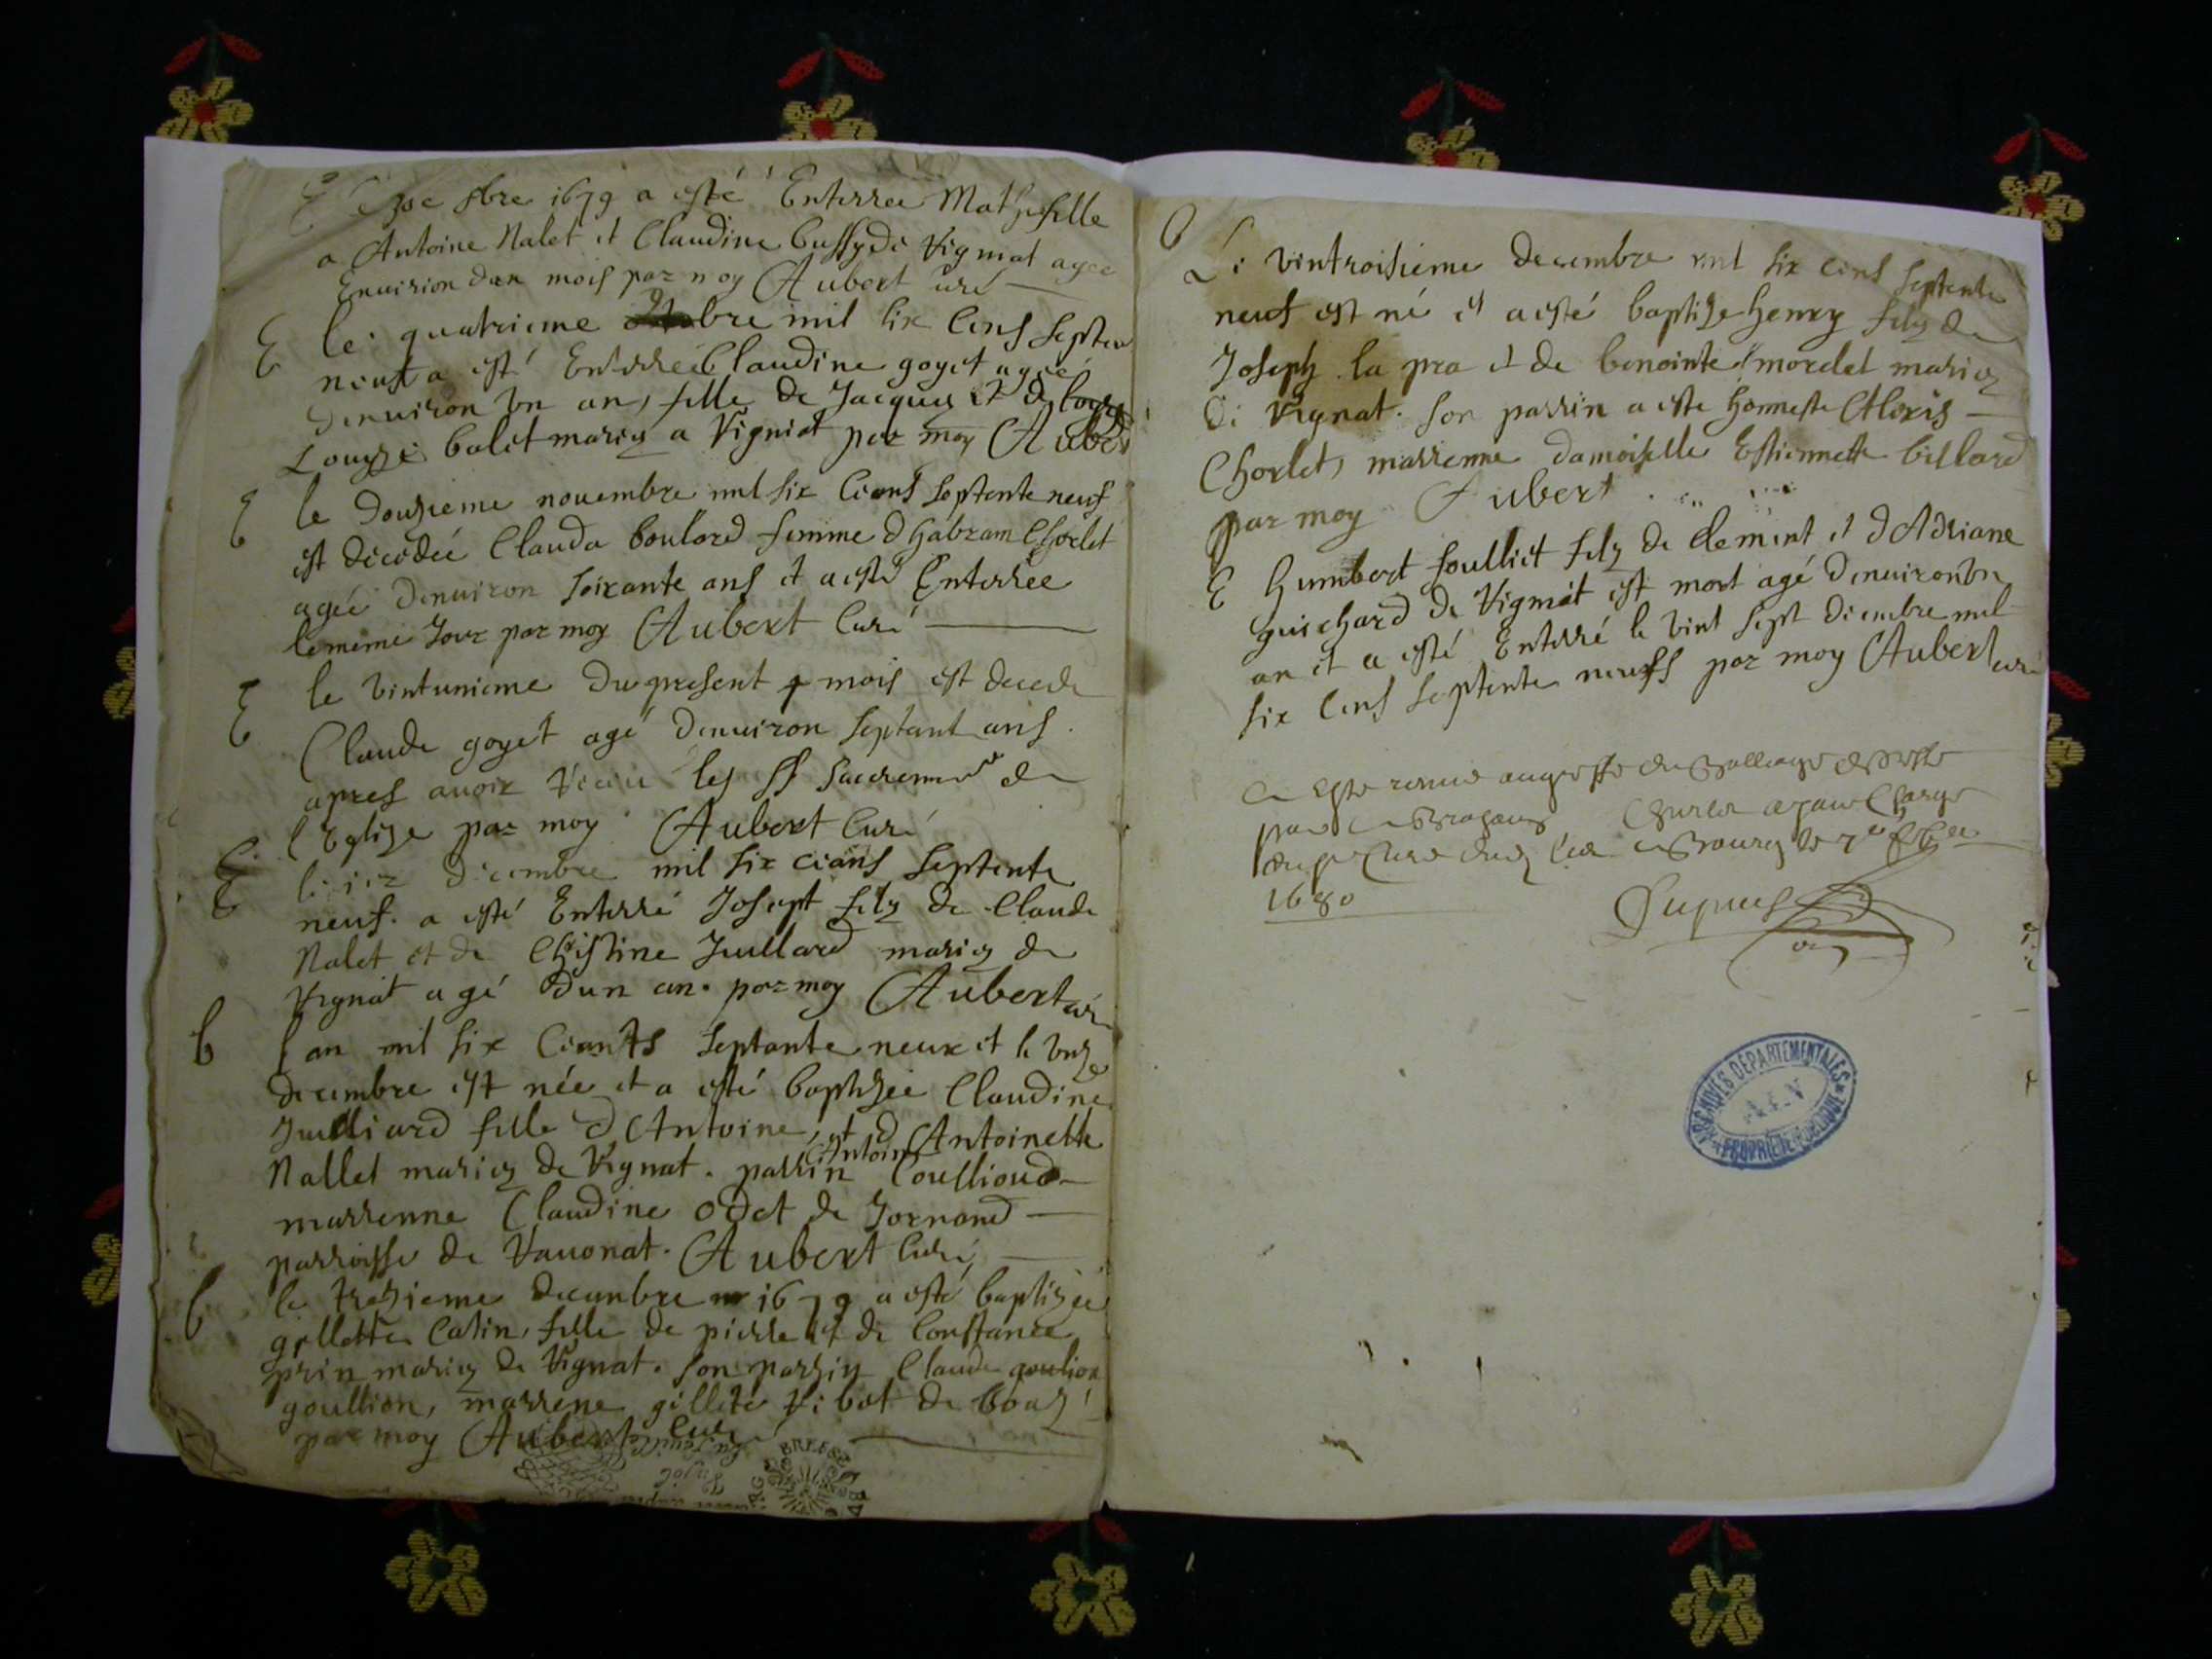 E Le 30e 8bre 1679 a esté Enterree Mathe fille
a Antoine Nalet et Claudine Bussy de Vignat agee
Enuirion dun mois par moy Aubert curé
E le quatrieme bre mil six cens septen
neuf a esté Enterrée Claudine goyet agée
denuiron vn an, fille de Jacques et de
Louyse balet mariez a Vigniat par moy Aubert
E le douzieme nouembre mil six cens septente neuf
est décédée Clauda boulard femme dhabram Chorlet
agée denuiron soixante ans et a esté Enterrée
le meme Jour par moy Aubert Curé
E le vintunieme du present mois est decede
Claude goyet agé denuiron septant ans.
apres auoir receu les SS sacrements de
l'Eglize par moy Aubert Curé
E le decembre mil six cians septente
neuf. a esté Enterré Josept filz de Claude
Nalet et de Christine Juillard mariez de
Vignat agé dun an. par moy Aubert curé
b lan mil six cians septante neuf et le vnze
decembre est née et a esté baptizee Claudine
Juilliard fille d Antoine, et d Antoinette
Nallet mariez de Vignat. parrin Antoine Coullioud
marrenne Claudine Odet de Jornand
parroisse de Vauonat. Aubert Curé
b le trezieme decembre 1679 a esté baptizée
gillette Catin, fille de pierre et de Constance
prin mariez de Vignat. son parrin Claude goulion
goullion, marrene gillete de
par moy Aubert Curé
BRESSE
b Le vintroisieme decembre mil six cens septente
neuf est né et a esté baptize henry filz de
Joseph la pra et de benointe morelet mariez
de Vignat. son parrin a este honneste Aloxis
Chorlet, marrenne damoiselle Estiennette billard
par moy Aubert
E humbert soulliet filz de clement et d Adriane
guichard de Vignat est mort agé denuiron vn
an et a esté Enterré le vint sept decembre mil
six cens septente neufs par moy Aubert curé
1680
Dupuis
ARCHIVES DÉPARTEMENTALES
AIN
PROPRIÉTÉ PUBLIQUE